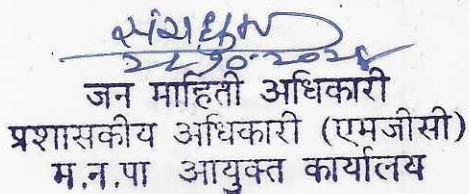 जन माहिती अधिकारी
प्रशासकीय अधिकारी (एमजीसी)
म.न.पा आयुक्त कार्यालय